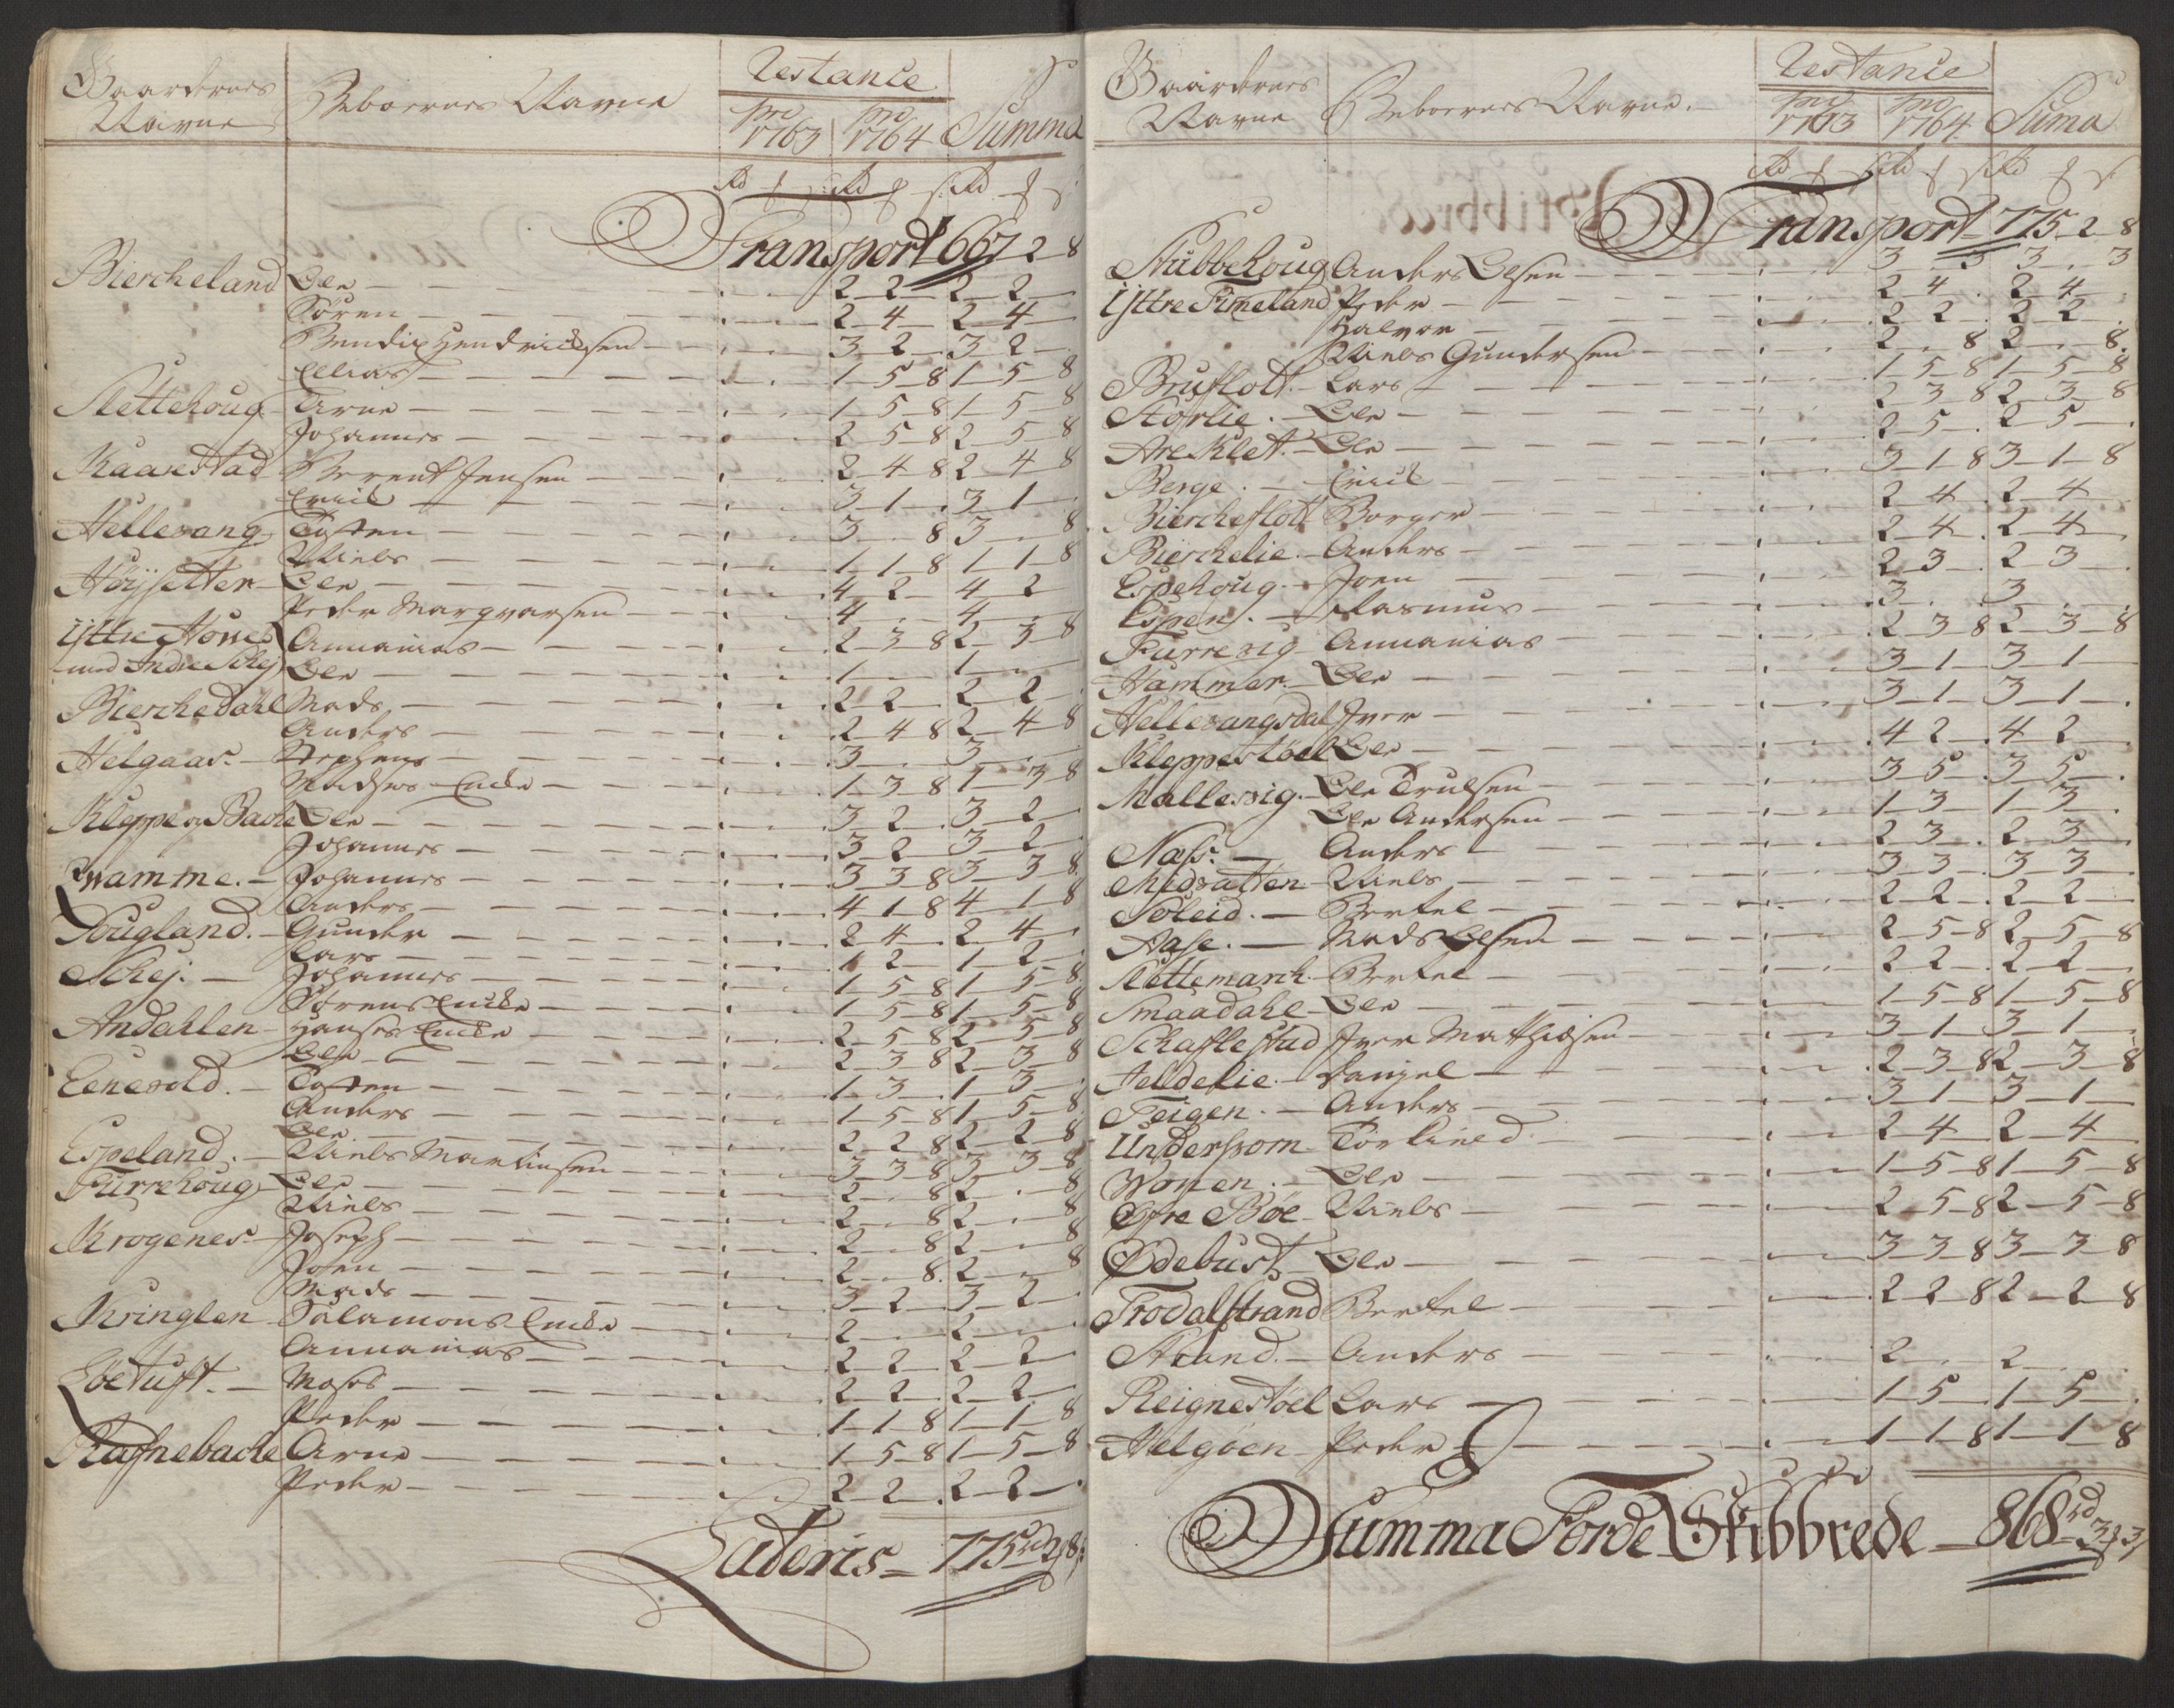 Gaardernes Navne Beboernes Navne Restance Summa
pro 1763 pro 1764
Rd Rd Rd
Transport 667 2 8
Biercheland Ole 2 2 2 2
Sören 2 4 2 4
Bendix Hendrichsen 3 2 3 2
Ellias 1 5 8 1 5 8
Slettehoug Arne 1 5 8 1 5 8
Johannes 2 5 8 2 5 8
Kaarestad Berent Jensen 2 4 8 2 4 8
Erick 3 1 3 1
Hellevang Tosten 3 8 3 8
Niels 1 1 8 1 1 8
Höÿsetter Ole 4 2 4 2
Peder Marqvarsen 4 4
Ÿttre Hovse Annanias 2 3 8 2 3 8
med Andre Schej Ole 1 1
Bierchedahl Mads 2 2 2 2
Anders 2 4 8 2 4 8
Helgaas Stephens 3 3
Madses Encke 1 3 8 1 3 8
Kleppe og Bache Ole 3 2 3 2
Johannes 3 2 3 2
Qvamme Johannes 3 3 8 3 3 8
Anders 4 1 8 4 1 8
Hougland Gunder 2 4 2 4
Lars 1 2 1 2
Schej Johannes 1 5 8 1 5 8
Sörens Encke 1 5 8 1 5 8
Andahlen Hanses Encke 2 5 8 2 5 8
Ole 2 3 8 2 3 8
Eenevold Tosten 1 3 1 3
Anders 1 5 8 1 5 8
Ole 2 2 8 2 2 8
Espeland Niels Martinsen 3 3 8 3 3 8
Furrehoug Ole 2 8 2 8
Niels 2 8 2 8
Krogenes Joseph 2 8 2 8
Joen 2 8 2 8
Mads 3 2 3 2
Kringlen Salamons Encke 2 2
Annanias 2 2 2 2
Löetuft Moses 2 2 2 2
Peder 1 1 8 1 1 8
Rafnebache Arne 1 5 8 1 5 8
Peder 2 2 2 2
Lateris 775 rd 2 8
Gaardernes Navne Beboernes Navne Restance Suma
pro 1763 pro 1764
Rd Rd Rd
Transport 775 2 8
Stubbehoug Anders Olsen 3 3 3 3
Ÿttre Timeland Peder 2 4 2 4
Halvor 2 2 2 2
Niels Gundersen 2 8 2 8
Bruflott Lars 1 5 8 1 5 8
Störlie Ole 2 3 8 2 3 8
Areklet Ole 2 5 2 5
Berge Erick 3 1 8 3 1 8
Biercheflott Borger 2 4 2 4
Bierchelie Anders 2 4 2 4
Espehoug Joen 2 3 2 3
Espen Rasmus 3 3
Furrevig Annanias 2 3 8 2 3 8
Hammer Ole 3 1 3 1
Hellevangsdal Iver 3 1 3 1
Kleppestöel Ole 4 2 4 2
Mallevig Ole Trulsen 3 5 3 5
Ole Andersen 1 3 1 3
Næss Anders 2 3 2 3
Midvatten Niels 3 3 3 3
Soleid Bertel 2 2 2 2
Aase Mads Olsen 2 5 8 2 5 8
Slettemarch Bertel 2 2 2 2
Smaadahl Ole 1 5 8 1 5 8
Schaflestad Iver Mathisen 3 1 3 1
Jeldelie Daniel 2 3 8 2 3 8
Teigen Anders 3 1 3 1
Undersom Torkined 2 4 2 4
Wonen Ole 1 5 8 1 5 8
Öfre Böe Niels 2 5 8 2 5 8
Ødebust Ole 3 3 8 3 3 8
Trodalstrand Bertel 2 2 8 2 2 8
Strand Anders 2 2
Reignestöel Lars 1 5 1 5
Helgöen Peder 1 1 8 1 1 8
Summa Förde Skibbrede 868 rd 3 3